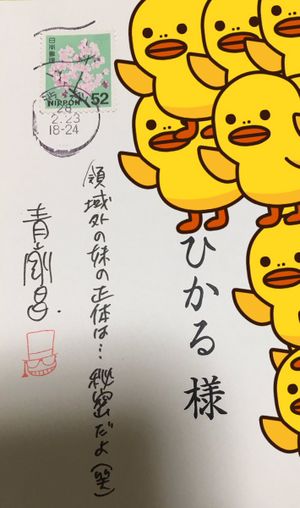 日本郵便
NIPPON 52
28
2.23
18-24
ひかる 様
領域外の妹の正体は…秘密だよ(笑)
青山剛昌.